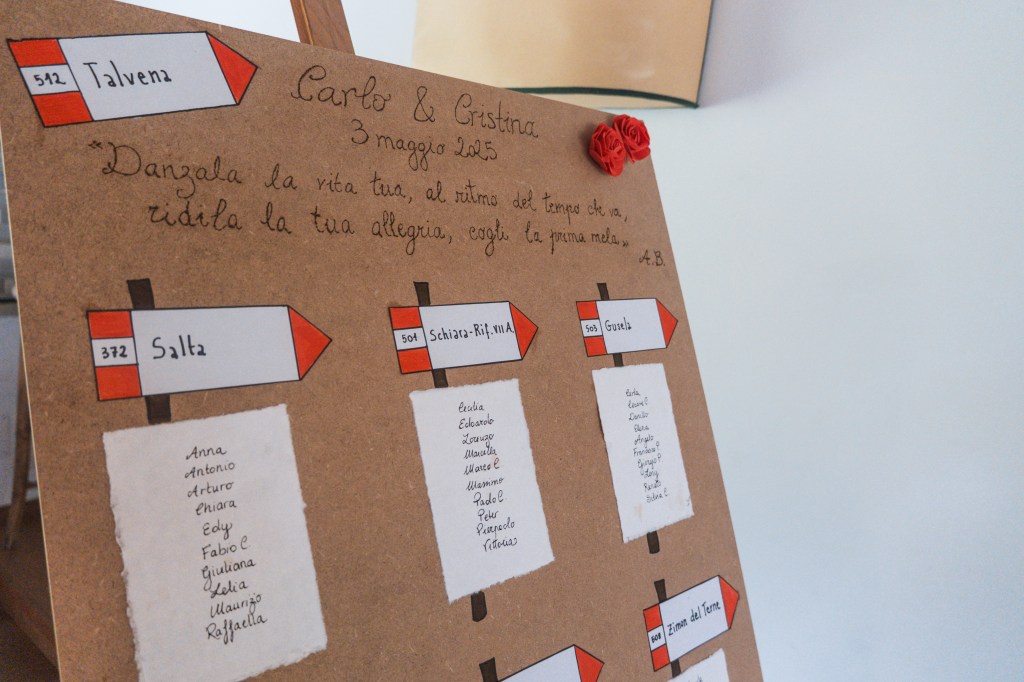 512 Talvena
Carlo & Cristina
3 maggio 2025
"Danzala la vita tua, al ritmo del tempo che va,
ridila la tua allegria, cogli la prima mela"
A.B.
372 Salta
Anna
Antonio
Arturo
Chiara
Edy
Fabio C
Giuliana
Lelia
Maurizio
Raffaella
501 Schiara-Rif. VII A.
Cecilia
Edoardo
Lorenzo
Marcella
Marco C.
Massimo
Paolo C
Peter
Pierpaolo
Vittoria
503 Gusela
Danilo
Elena
Angelo
Francesco P.
Giorgio P.
Renato
Silvia C.
Zimon del Terne